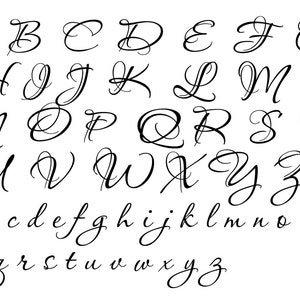 B C D E F
H I J K L M
O P Q R S
U V W X Y Z
c d e f g h i j k l m n o
q r s t u v w x y z